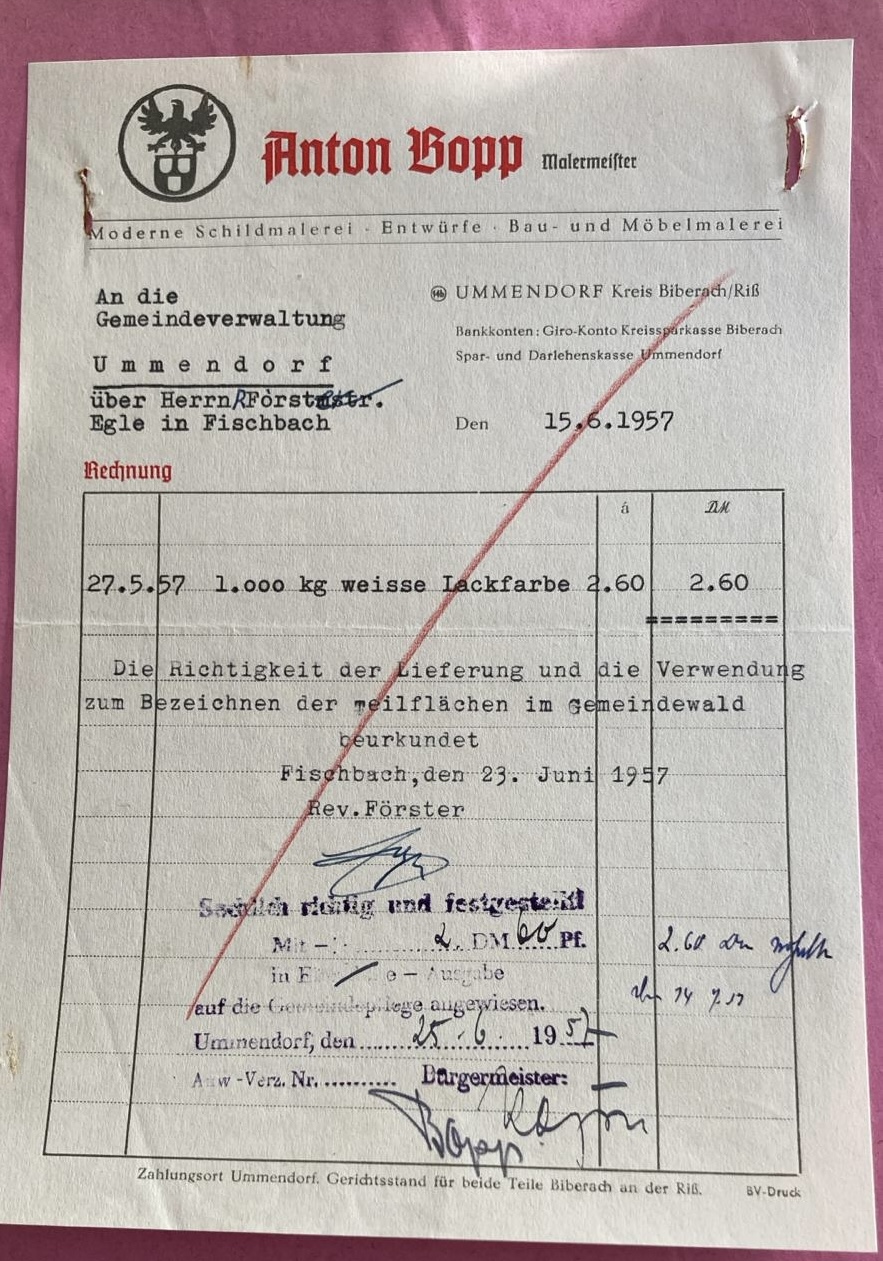 Anton Bopp Malermeister
Moderne Schildmalerei · Entwürfe · Bau- und Möbelmalerei
An die
Gemeindeverwaltung
Ummendorf
über Herrn R Förster
Egle in Fischbach
UMMENDORF Kreis Biberach/Riß
Bankkonten: Giro-Konto Kreissparkasse Biberach
Spar- und Darlehenskasse Ummendorf
Den 15.6.1957
Rechnung
á DM
27.5.57 1.000 kg weisse Lackfarbe 2.60 2.60
=========
Die Richtigkeit der Lieferung und die Verwendung
zum Bezeichnen der Teilflächen im Gemeindewald
beurkundet
Fischbach,den 23. Juni 1957
Rev.Förster
Sachlich richtig und festgestellt
Mit 2. DM 60 Pf.
in e - Ausgabe
auf die Gemeindepflege angewiesen.
Ummendorf, den 25.6. 1957
Anw-Verz. Nr. .......... Bürgermeister:
2.60 DM
14 7.57
Bopp
Zahlungsort Ummendorf. Gerichtsstand für beide Teile Biberach an der Riß.
BV-Druck